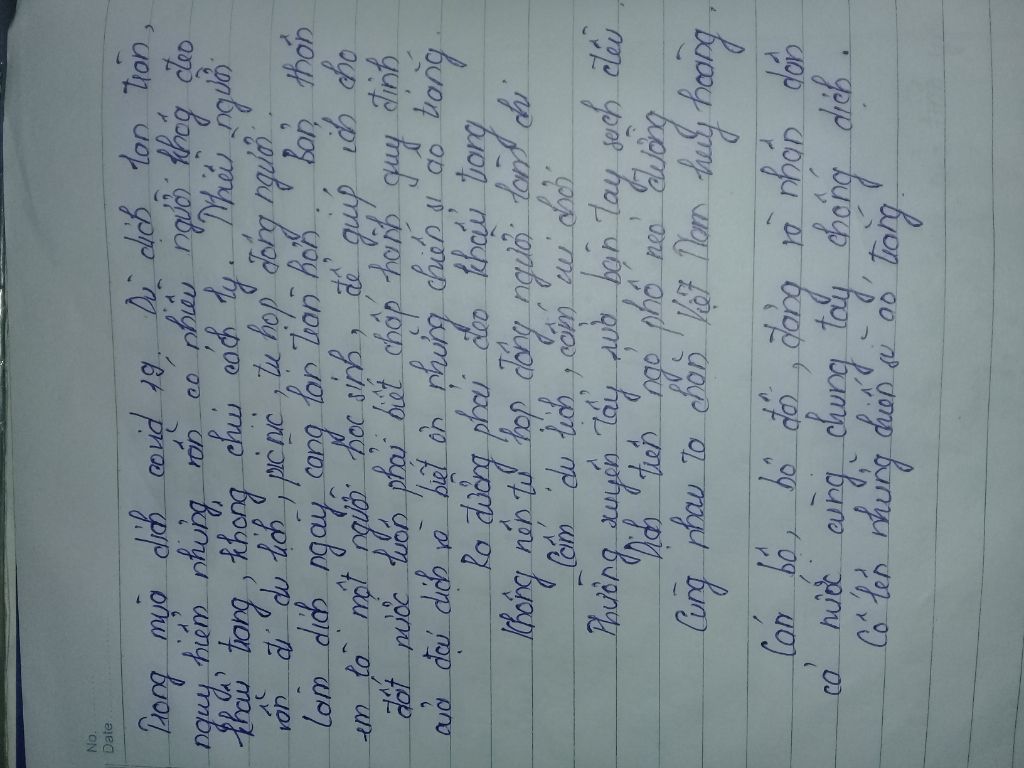 No.
Date
Trong mùa dịch covid 19. Dù dịch lan tràn,
nguy hiểm nhưng vẫn có nhiều người không đeo
khẩu trang, không chịu cách ly. Nhiều người
vẫn đi du lịch, picnic, tụ họp đông người.
Làm dịch ngày càng lan tràn hơn. Bản thân
em là một người học sinh, để giúp ích cho
đất nước luôn phải biết chấp hành quy định
của đại dịch và biết ơn những chiến sĩ áo trắng
Ra đường phải đeo khẩu trang
Không nên tụ họp đông người làm chi.
Cấm du lịch, cấm vui chơi
Thường xuyên tẩy rửa bàn tay sạch đều
Dịch trên ngỏ phố nẻo đường
Cùng nhau ta chặn Việt Nam huy hoàng
Cán bộ, bộ đội, đảng và nhân dân
cả nước cùng chung tay chống dịch.
Cố lên những chiến sĩ áo trắng.